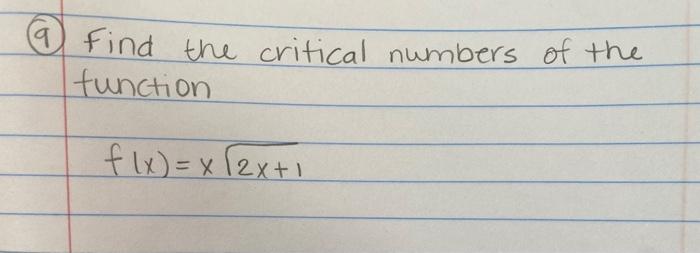 9 Find the critical numbers of the
function
f(x) = x √2x+1